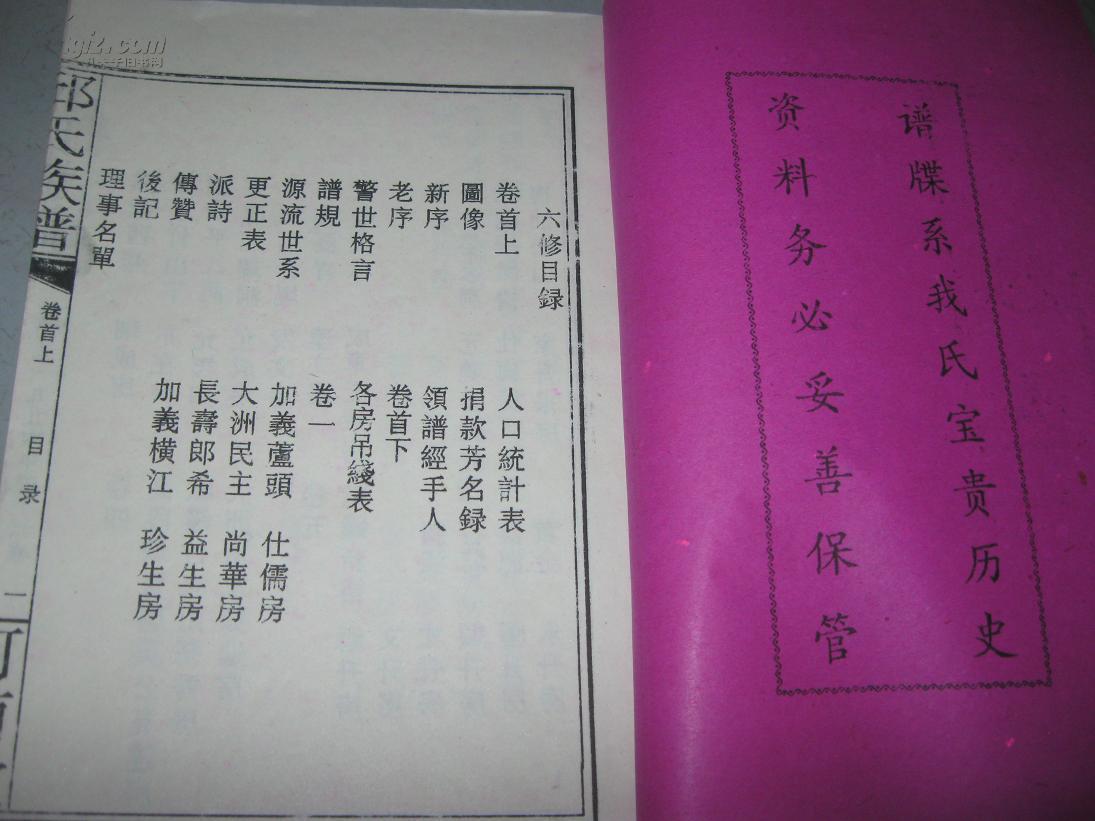 谱牒系我氏宝贵历史
资料务必妥善保管
六修目録
卷首上
圖像
新序
老序
警世格言
譜規
源流世系
更正表
派詩
傳贊
後記
理事名單
人口統計表
捐款芳名録
領譜經手人
卷首下
各房吊綫表
卷一
加義蘆頭 仕儒房
大洲民主 尚華房
長壽郎希 益生房
加義横江 珍生房
邱氏族譜
卷首上
目录
二